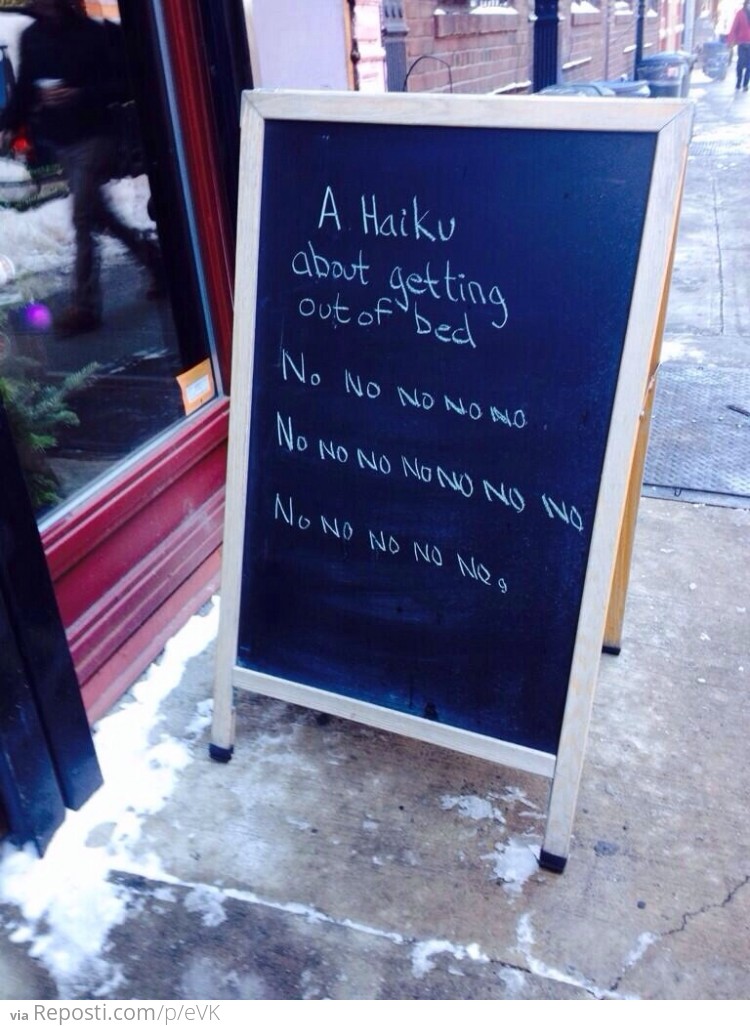 A Haiku
about getting
out of bed
No No No No No
No No No No No No No
No No No No No.
via Reposti.com/p/eVK